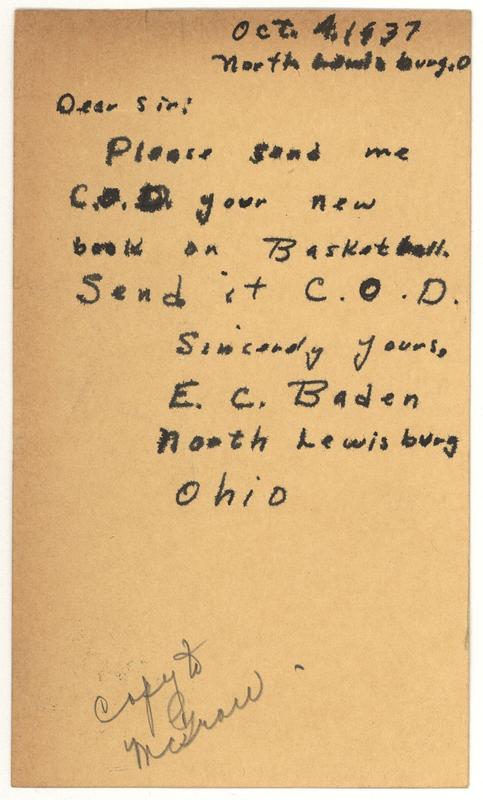 Oct. 4, 1937
North Lewisburg, O
Dear Sir:
Please send me
C.O.D. your new
book on Basketball.
Send it C.O.D.
Sincerely yours,
E. C. Baden
North Lewisburg
Ohio
Copy to
McGraw